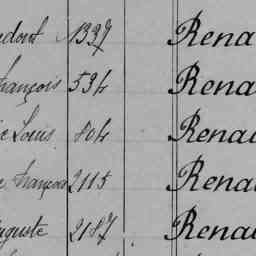 1337 Rena
François 534 Rena
Louis 804 Rena
François 2115 Rena
Auguste 2187 Rena